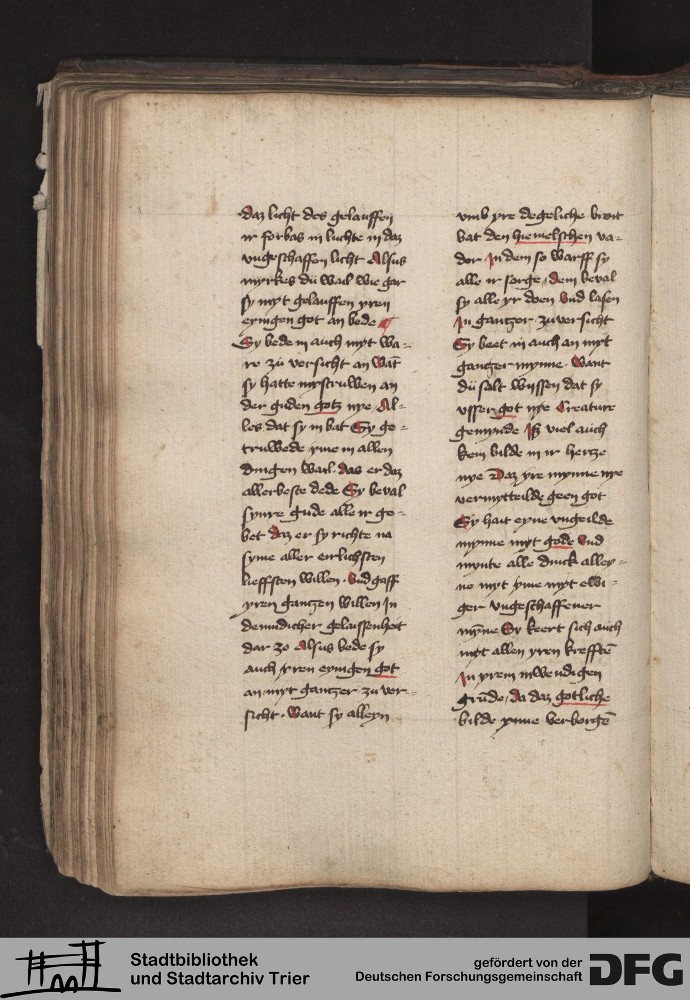 Daz licht des gelauffen
ir forbas in luchte in daz
vngeschaffen licht Alsus
myrkes du wail wie gar
sy myt gelauffen yren
eynigen got an bede
Sy bede in auch myt wa-
re zu versicht an wāt
sy hatte mystruwen an
der guden gotz nye Al-
les dat sy in bat Sy ge-
truwede yme in allen
dingen wail das er daz
allerbeste dede Sy beval
synre gude alle ir ge-
bet Daz er sy richte na
syme aller eirlichsten
lieffsten willen. Vnd gaff
yren gantzen willen In
demudicher gelaissenheit
dar zo Alsus bede sy
auch yren eynigen got
an myt gantzer zu ver-
sicht. Want sy alleyn
vmb yre degeliche broit
bat den hiemelschen va-
der In dem so warff sy
alle ir sorge, dem beval
sy alle yr doen Vnd lasen
In gantzer zuversicht
Sy beet in auch an myt
gantzer mynne. Want
du salt wyssen dat sy
vsser got nye Creature
gemynde Iß viel auch
kein bilde in ir hertze
nye Daz yre mynne nye
vermytteilde geen got
Sy hait eyne vngeilde
mynne myt gode Vnd
mynte alle dinck alley-
ne myt yme myt ewi-
ger vngeschaffener
mȳne Sy keert sich auch
mit allen yren krefftē
In yrem inwendigen
grūde, da daz gotliche
bilde ynne verborgē
Stadtbibliothek
und Stadtarchiv Trier
gefördert von der
Deutschen Forschungsgemeinschaft
DFG